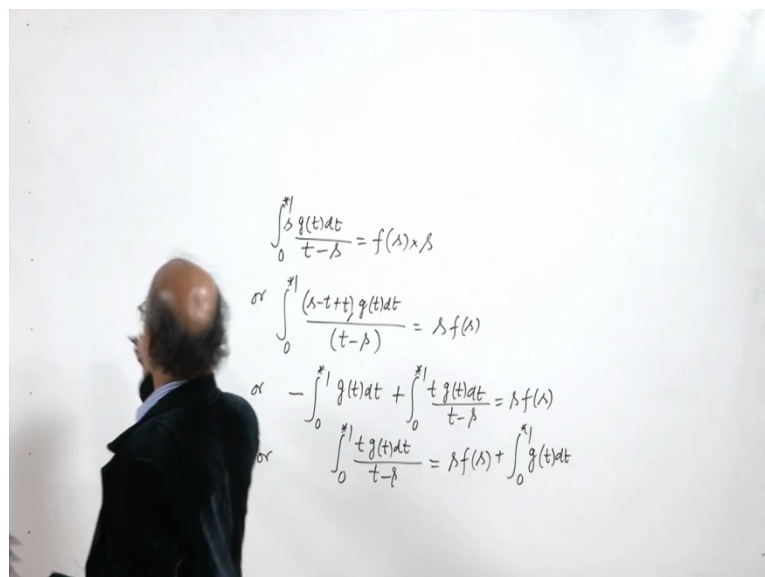 ∫₀*¹ s g(t)dt / t-s = f(s)×s
or ∫₀*¹ (s-t+t) g(t)dt / (t-s) = s f(s)
or -∫₀*¹ g(t)dt + ∫₀*¹ t g(t)dt / t-s = s f(s)
or ∫₀*¹ t g(t)dt / t-s = s f(s) + ∫₀*¹ g(t)dt